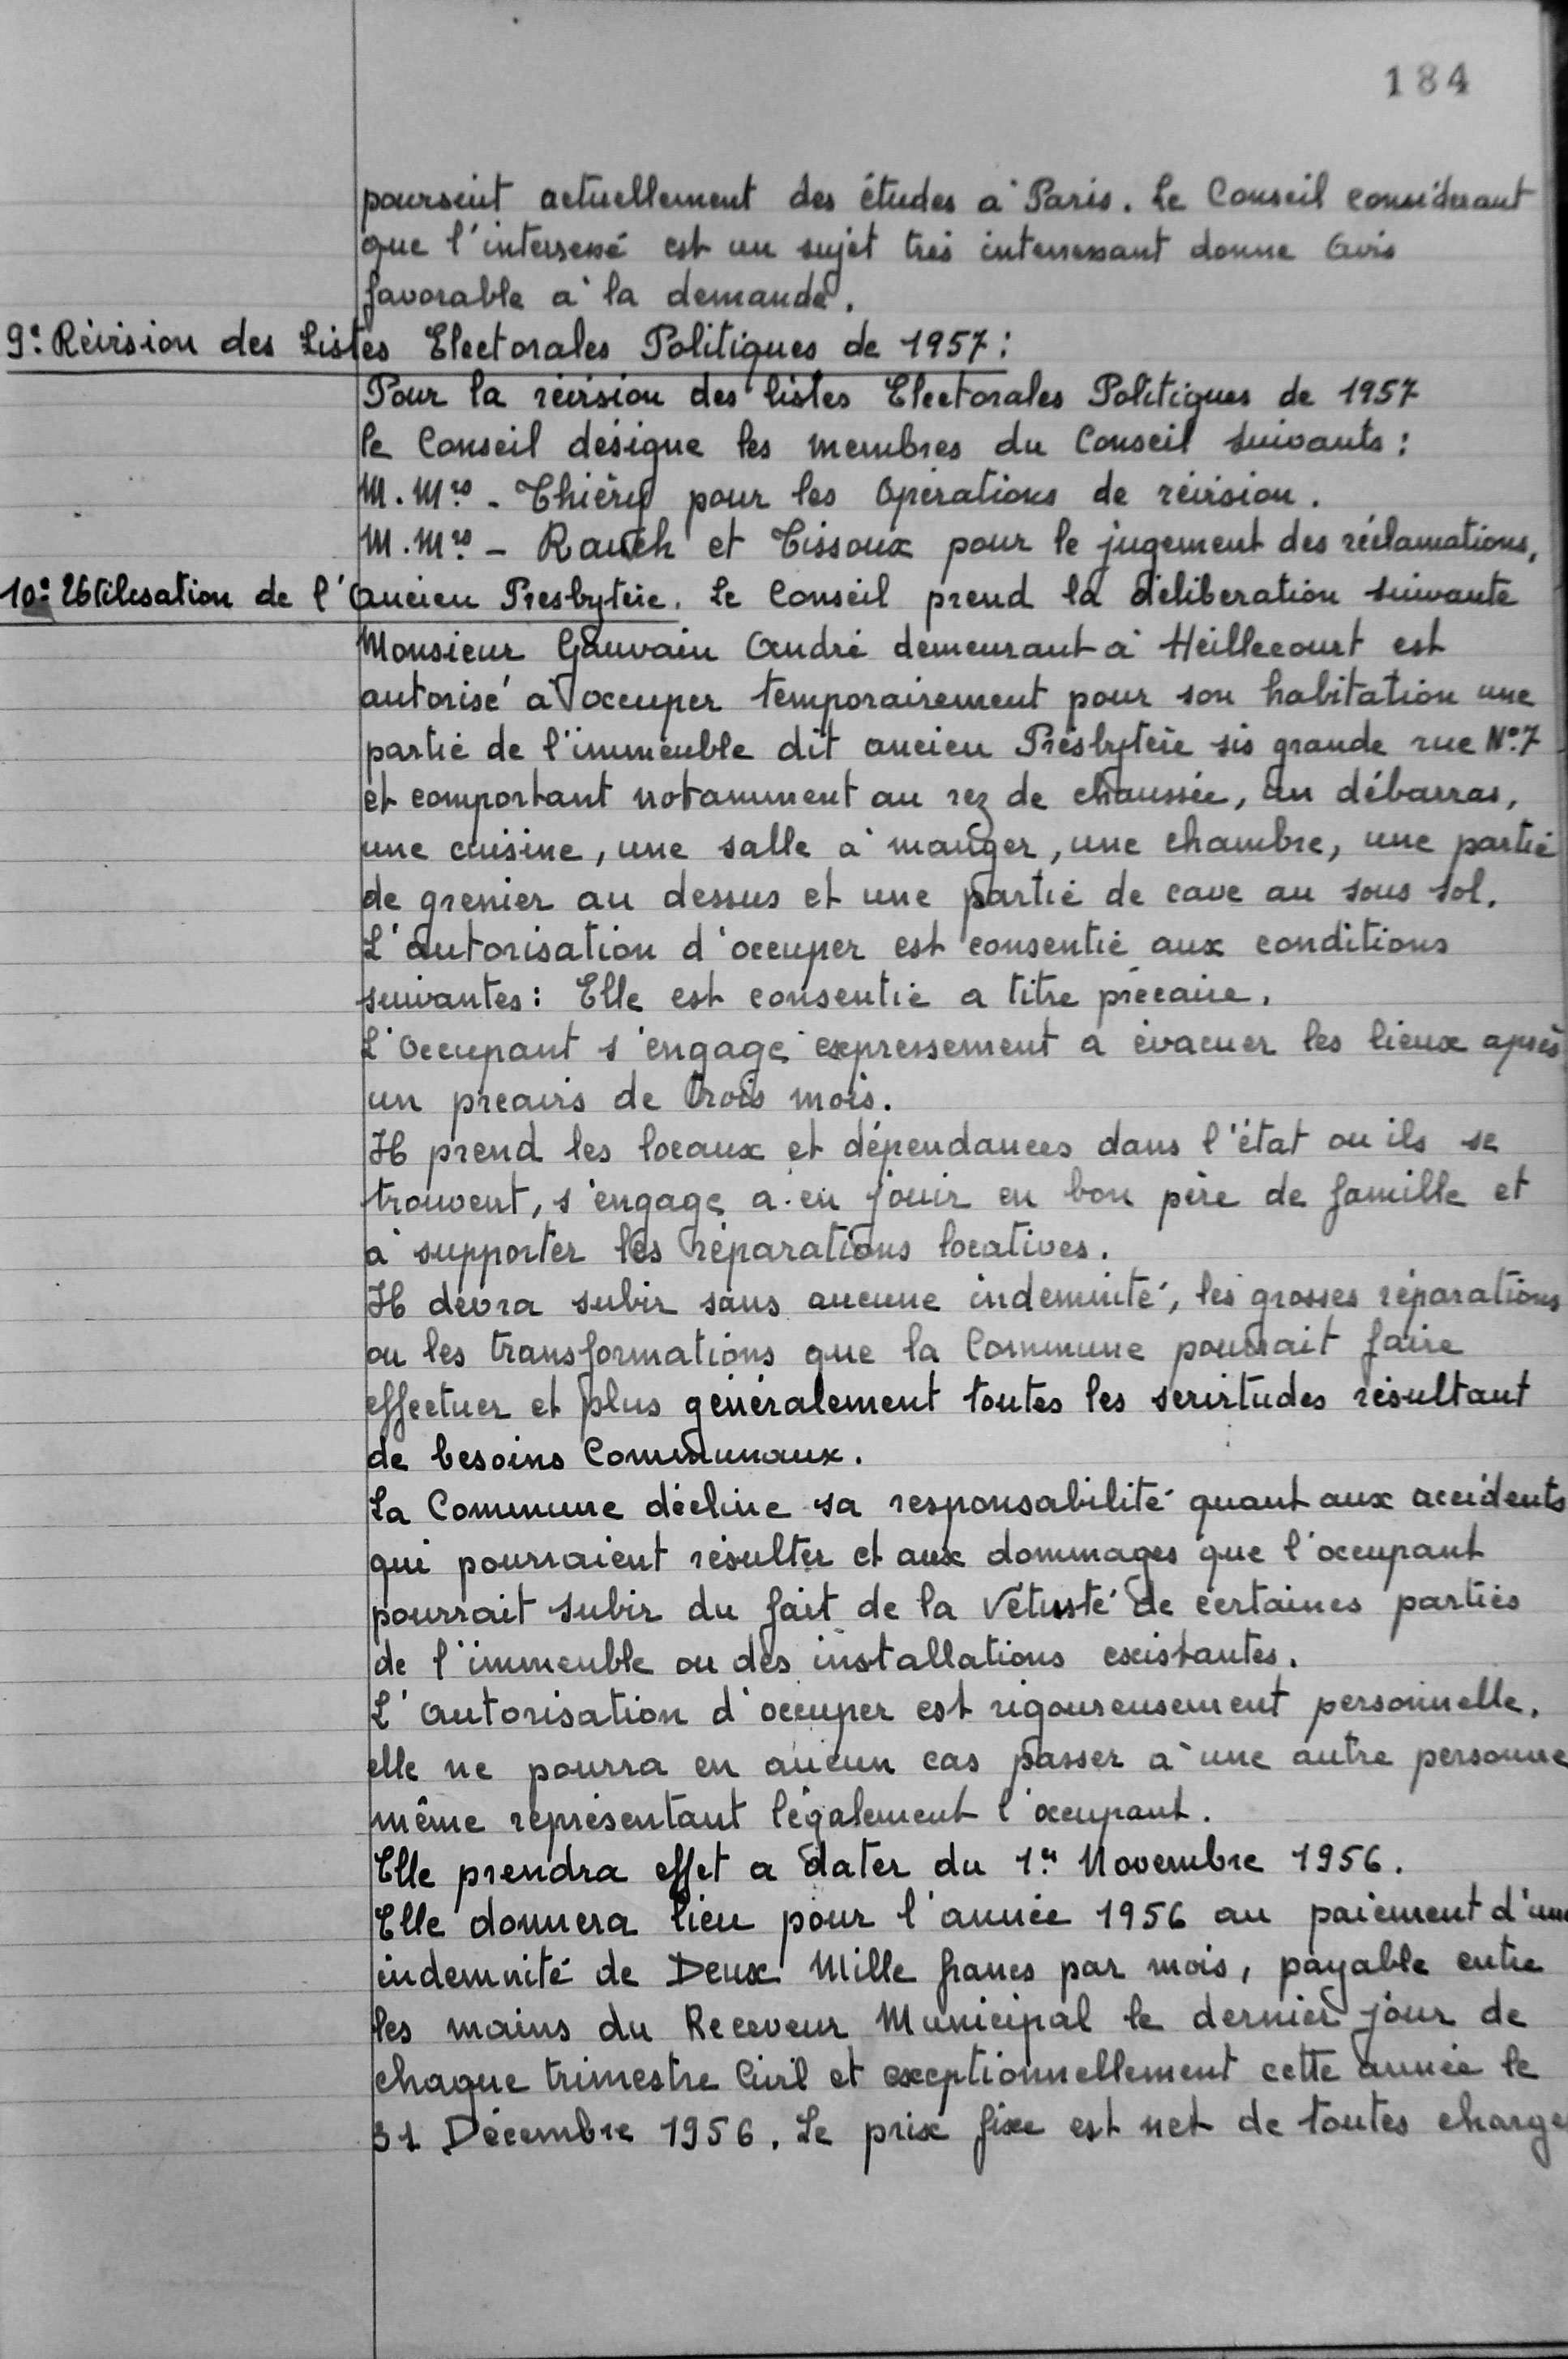 184
poursuit actuellement des études à Paris. Le Conseil considerant
que l'interessé est un sujet très interressant donne Avis
favorable à la demande.
9°: Révision des Listes Electorales Politiques de 1957:
Pour la révision des listes Electorales Politiques de 1957
le Conseil désigne les membres du Conseil suivants:
M.Mrs - Thiéry pour les Opérations de révision.
M.Mrs - Rauch et Tissoux pour le jugement des réclamations.
10°: Utilisation de l'Ancien Presbytère. Le Conseil prend la déliberation suivante
Monsieur Gauvain André demeurant à Heillecourt est
autorisé à occuper temporairement pour son habitation une
partie de l'immeuble dit ancien Presbytère sis grande rue N°7
et comportant notamment au rez de chaussée, un débarras,
une cuisine, une salle à manger, une chambre, une partie
de grenier au dessus et une partie de cave au sous sol.
L'autorisation d'occuper est consentie aux conditions
suivantes: Elle est consentie a titre précaire.
L'Occupant s'engage expressement a évacuer les lieux après
un préavis de trois mois.
Il prend les locaux et dépendances dans l'état ou ils se
trouvent, s'engage a en jouir en bon père de famille et
à supporter les réparations locatives.
Il devra subir sans aucune indemnité, les grosses réparations
ou les transformations que la Commune pourrait faire
effectuer et plus généralement toutes les servitudes résultant
de besoins Communaux.
La Commune décline sa responsabilité quant aux accidents
qui pourraient résulter et aux dommages que l'occupant
pourrait subir du fait de la vétusté de certaines parties
de l'immeuble ou des installations existantes.
L'autorisation d'occuper est rigoureusement personnelle,
elle ne pourra en aucun cas passer à une autre personne
même représentant légalement l'occupant.
Elle prendra effet a dater du 1er Novembre 1956.
Elle donnera lieu pour l'année 1956 au paiement d'une
indemnité de Deux Mille francs par mois, payable entre
les mains du Receveur Municipal le dernier jour de
chaque trimestre Civil et exceptionnellement cette année le
31 Décembre 1956. Le prix fixe est net de toutes charge